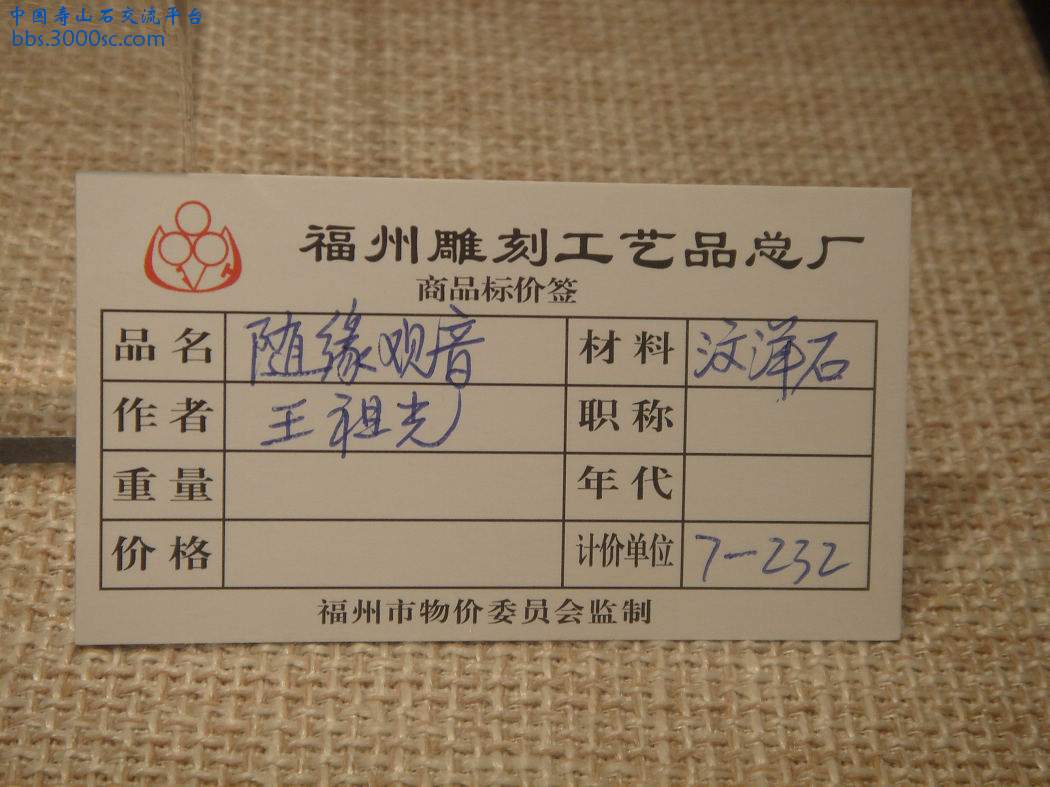 中国寿山石交流平台
bbs.3000sc.com
福州雕刻工艺品总厂
商品标价签
品名 随缘观音 材料 汶洋石
作者 王祖光 职称
重量 年代
价格 计价单位 7-232
福州市物价委员会监制